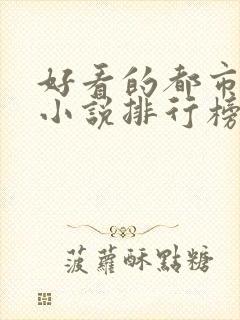 好看的都市
小说排行榜
菠蘿酥點糖